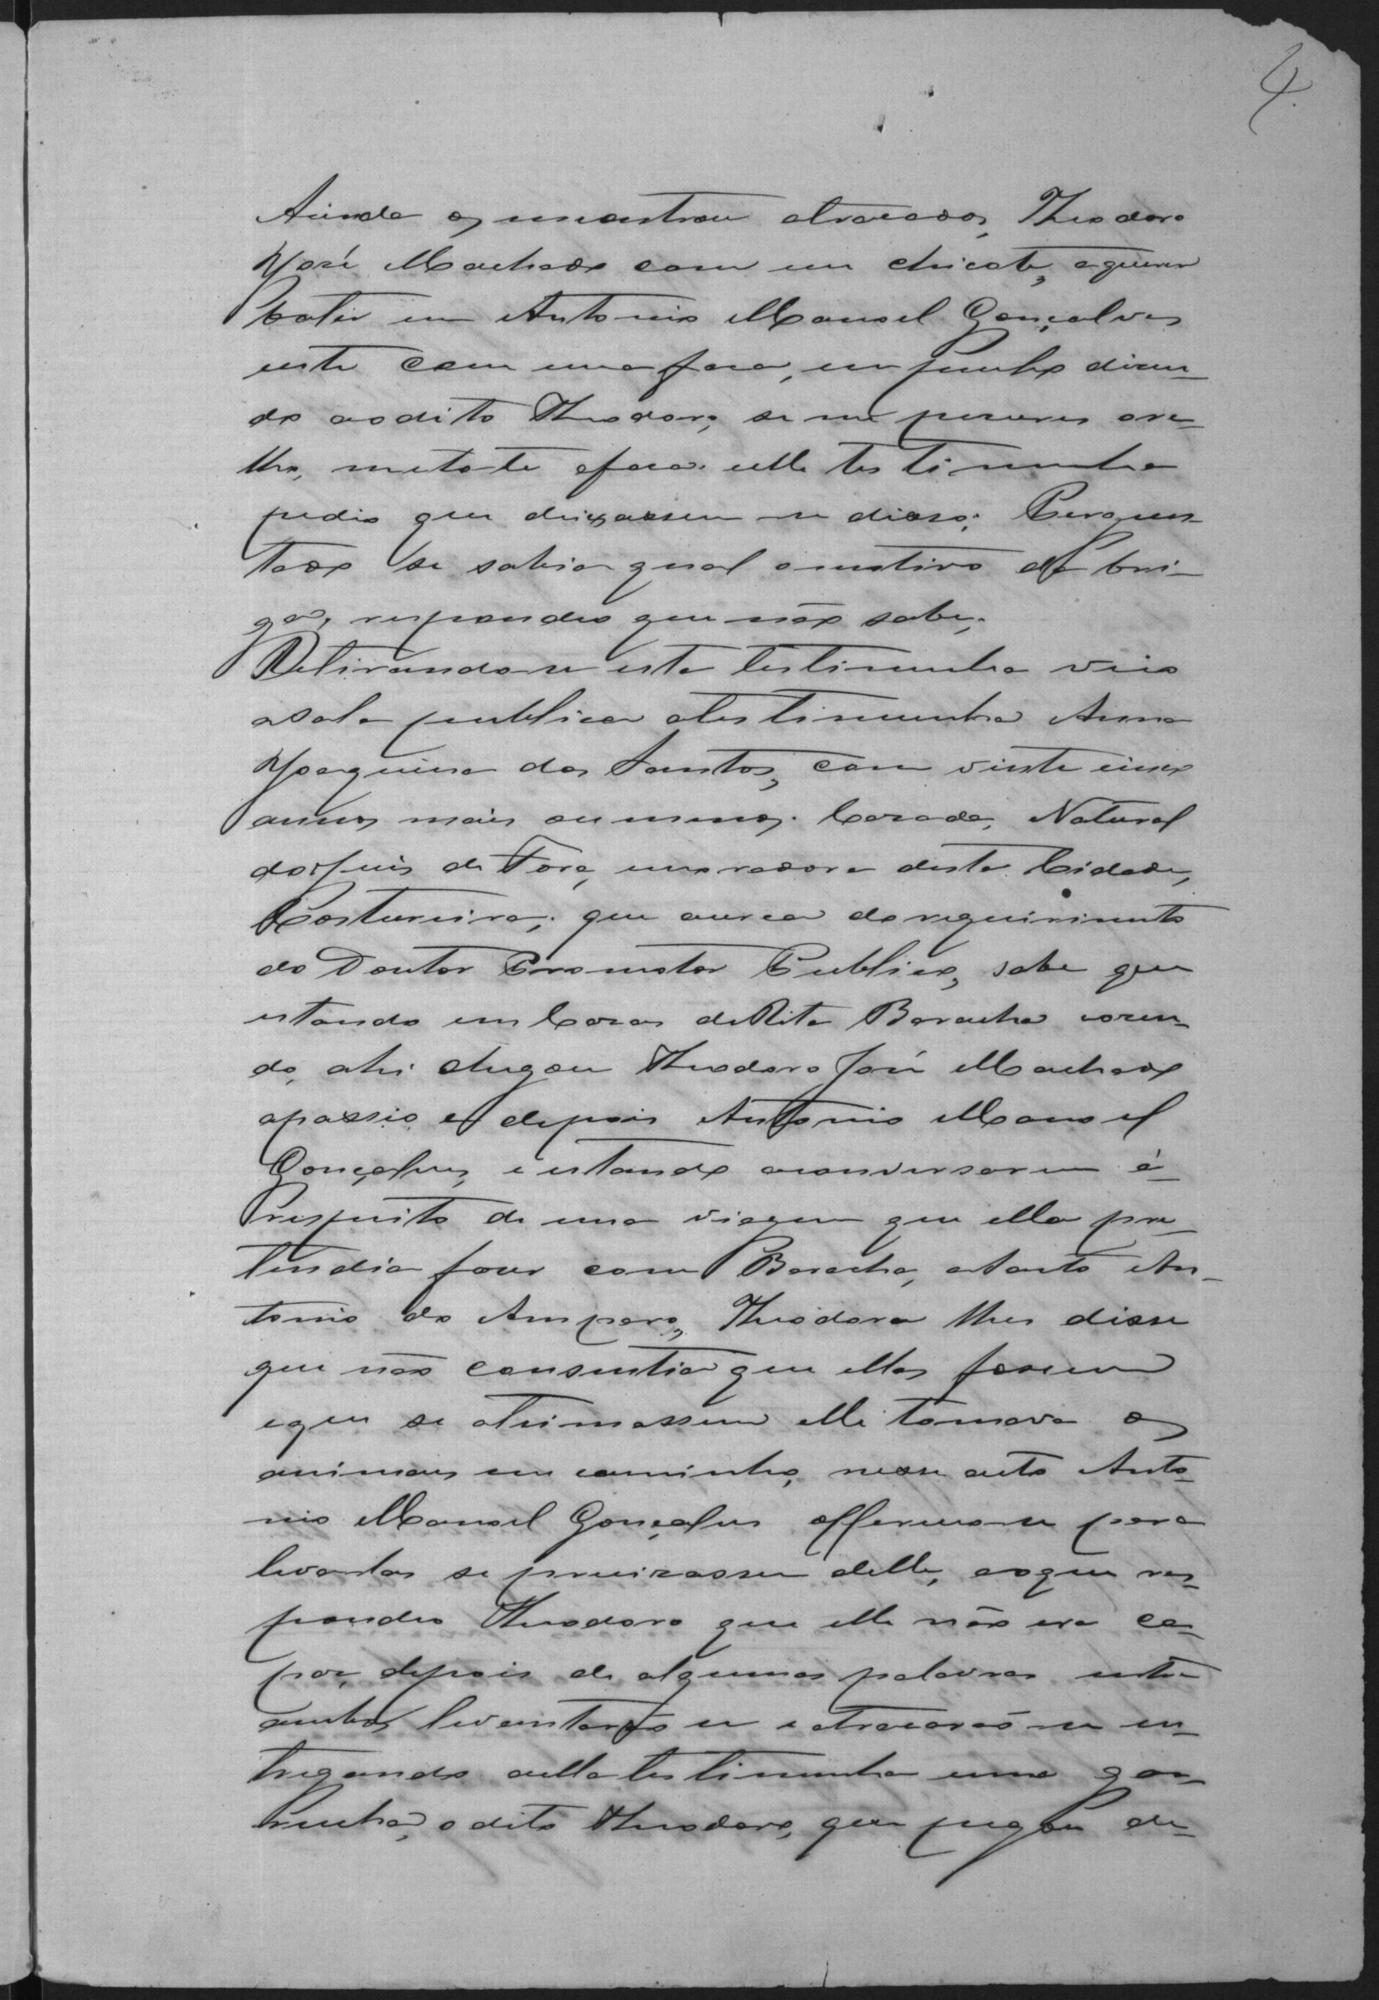 4.
Ainda os encontrou atracados, Theodoro
José Machado com um chicote, a querer
bater em Antonio Manoel Gonçalves
este com uma faca, em punho dizen-
do ao dito Theodoro, se me
lho, meto te a faca. elle testimunha
pedio que deixassem se disso. Pergun-
tado se sabia qual o motivo da bri-
ga, respondeo que não sabe.
Retirando se esta testimunha veio
a sala publica a testimunha Anna
Joaquina dos Santos, com vinte cinco
annos mais ou menos. Casada, Natural
do Juis de Fora, moradora desta Cidade,
Costureira; que acerca do requirimento
do Doutor Promotor Publico, sabe que
estando em Casa de Rita Baracha cozen-
do, ahi chegou Theodoro José Machado
apasseio e depois Antonio Manoel
Gonçalves, e estando aconversarem á
respeito de uma viagem que ella pre-
tendia fazer com Baracha, a Santo An-
tonio do Amparo, Theodoro lhes disse
que não consentia que ellas fossem
e que se teimassem elle tomava os
animaes em caminho, nesse acto Anto-
nio Manoel Gonçalves offereceo se para
leval-as se precizassem delle, ao que res-
pondeo Theodoro que elle não era ca-
paz, depois de algumas palavras entre
ambos levantarão se e atracarão se en-
tregando a ella testimunha uma gar-
rucha, o dito Theodoro, que pegou de-